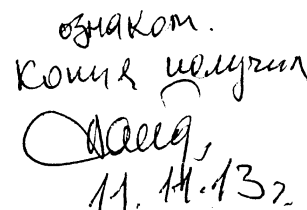 ознаком.
копия получил
11.11.13г.